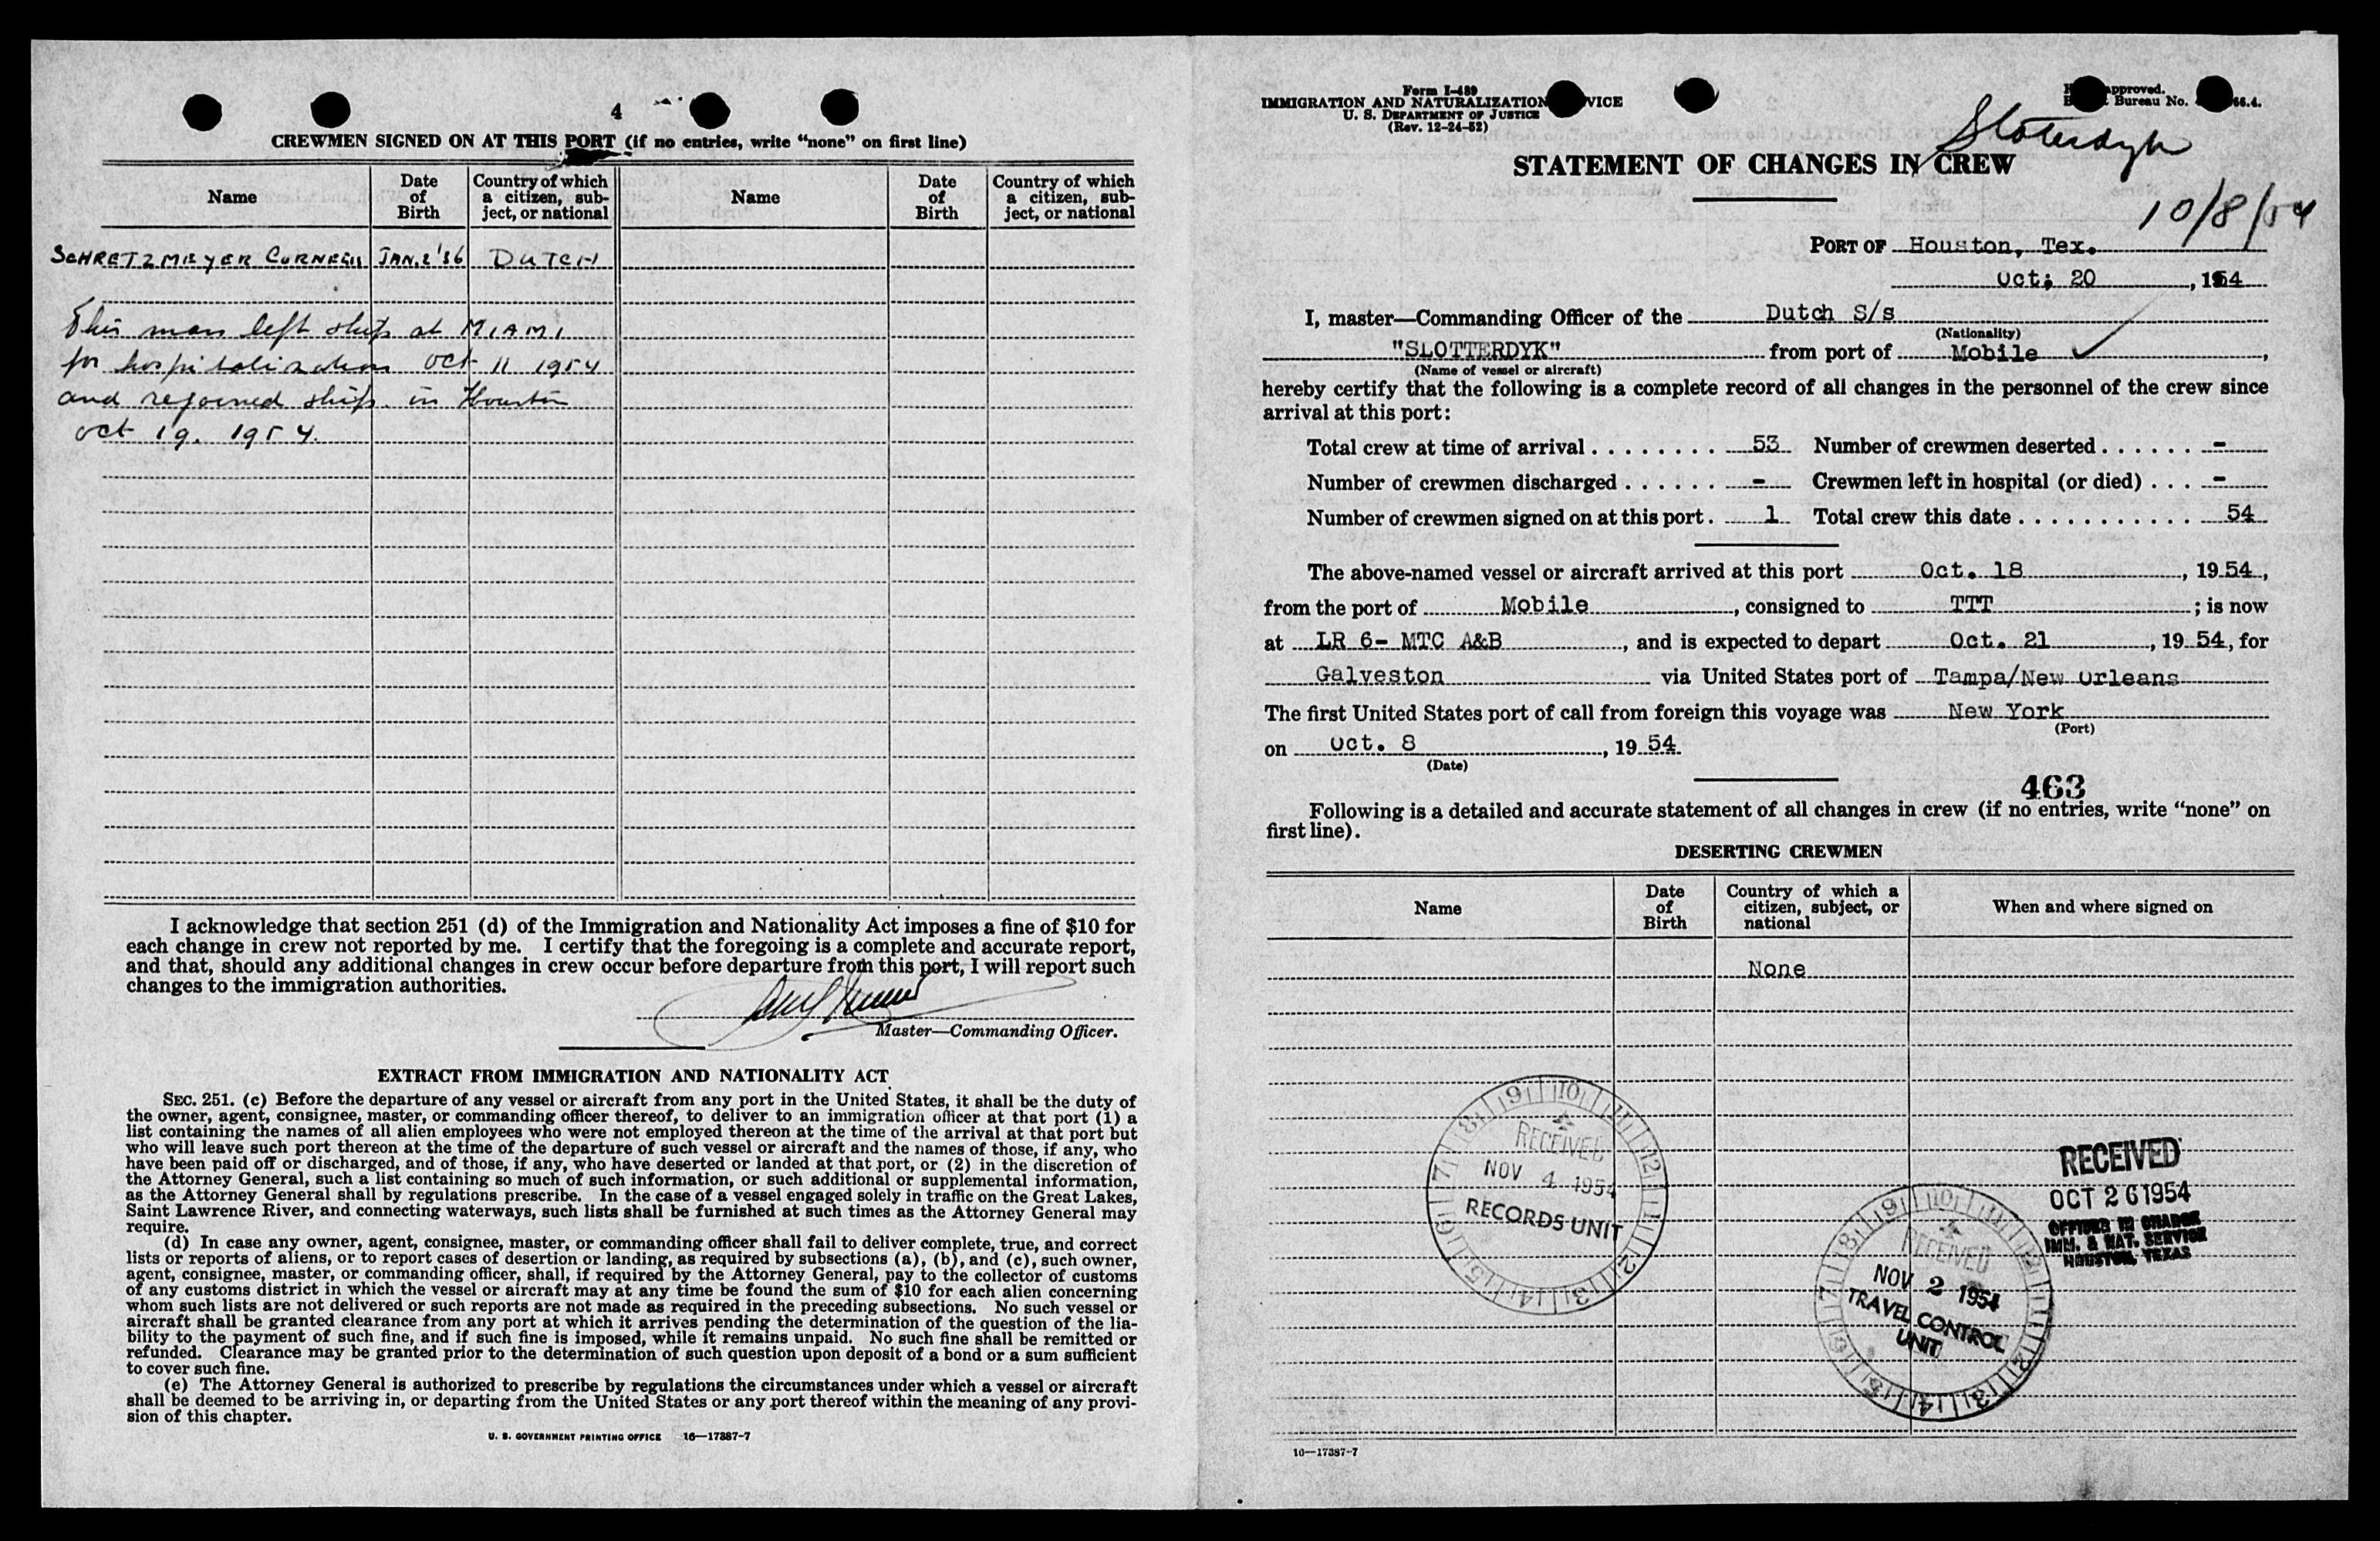 4
CREWMEN SIGNED ON AT THIS PORT (if no entries, write “none” on first line)
Name
Date of Birth
Country of which a citizen, subject, or national
Name
Date of Birth
Country of which a citizen, subject, or national
SCHRETZMEYER CORNELIS JAN. 2 '36 DUTCH
This man left ship at MIAMI
for hospitalization oct 11 1954
and rejoined ship in Houston
oct 19. 1954.
I acknowledge that section 251 (d) of the Immigration and Nationality Act imposes a fine of $10 for
each change in crew not reported by me. I certify that the foregoing is a complete and accurate report,
and that, should any additional changes in crew occur before departure from this port, I will report such
changes to the immigration authorities.
Master—Commanding Officer.
EXTRACT FROM IMMIGRATION AND NATIONALITY ACT
SEC. 251. (c) Before the departure of any vessel or aircraft from any port in the United States, it shall be the duty of
the owner, agent, consignee, master, or commanding officer thereof, to deliver to an immigration officer at that port (1) a
list containing the names of all alien employees who were not employed thereon at the time of the arrival at that port but
who will leave such port thereon at the time of the departure of such vessel or aircraft and the names of those, if any, who
have been paid off or discharged, and of those, if any, who have deserted or landed at that port, or (2) in the discretion of
the Attorney General, such a list containing so much of such information, or such additional or supplemental information,
as the Attorney General shall by regulations prescribe. In the case of a vessel engaged solely in traffic on the Great Lakes,
Saint Lawrence River, and connecting waterways, such lists shall be furnished at such times as the Attorney General may
require.
(d) In case any owner, agent, consignee, master, or commanding officer shall fail to deliver complete, true, and correct
lists or reports of aliens, or to report cases of desertion or landing, as required by subsections (a), (b), and (c), such owner,
agent, consignee, master, or commanding officer, shall, if required by the Attorney General, pay to the collector of customs
of any customs district in which the vessel or aircraft may at any time be found the sum of $10 for each alien concerning
whom such lists are not delivered or such reports are not made as required in the preceding subsections. No such vessel or
aircraft shall be granted clearance from any port at which it arrives pending the determination of the question of the lia-
bility to the payment of such fine, and if such fine is imposed, while it remains unpaid. No such fine shall be remitted or
refunded. Clearance may be granted prior to the determination of such question upon deposit of a bond or a sum sufficient
to cover such fine.
(e) The Attorney General is authorized to prescribe by regulations the circumstances under which a vessel or aircraft
shall be deemed to be arriving in, or departing from the United States or any port thereof within the meaning of any provi-
sion of this chapter.
U. S. GOVERNMENT PRINTING OFFICE 16—17387-7
Form I-489
IMMIGRATION AND NATURALIZATION VICE
U. S. DEPARTMENT OF JUSTICE
(Rev. 12-24-52)
approved.
Bureau No. 66.4.
Sloterdyk
10/8/54
STATEMENT OF CHANGES IN CREW
PORT OF Houston, Tex.
Oct; 20, 1954
I, master—Commanding Officer of the Dutch S/s
(Nationality)
"SLOTTERDYK" from port of Mobile ✓,
(Name of vessel or aircraft)
hereby certify that the following is a complete record of all changes in the personnel of the crew since
arrival at this port:
Total crew at time of arrival 53 Number of crewmen deserted -
Number of crewmen discharged - Crewmen left in hospital (or died) -
Number of crewmen signed on at this port 1 Total crew this date 54
The above-named vessel or aircraft arrived at this port Oct. 18, 1954,
from the port of Mobile, consigned to TTT; is now
at LR 6- MTC A&B, and is expected to depart Oct. 21, 1954, for
Galveston via United States port of Tampa/New Orleans
The first United States port of call from foreign this voyage was New York
(Port)
on Oct. 8, 1954
(Date)
463
Following is a detailed and accurate statement of all changes in crew (if no entries, write “none” on
first line).
DESERTING CREWMEN
Name
Date of Birth
Country of which a citizen, subject, or national
When and where signed on
None
RECEIVED
NOV 4 1954
RECORDS UNIT
RECEIVED
OCT 26 1954
OFFICER IN CHARGE
IMM. & NAT. SERVICE
HOUSTON, TEXAS
RECEIVED
NOV 2 1954
TRAVEL CONTROL
UNIT
16—17387-7